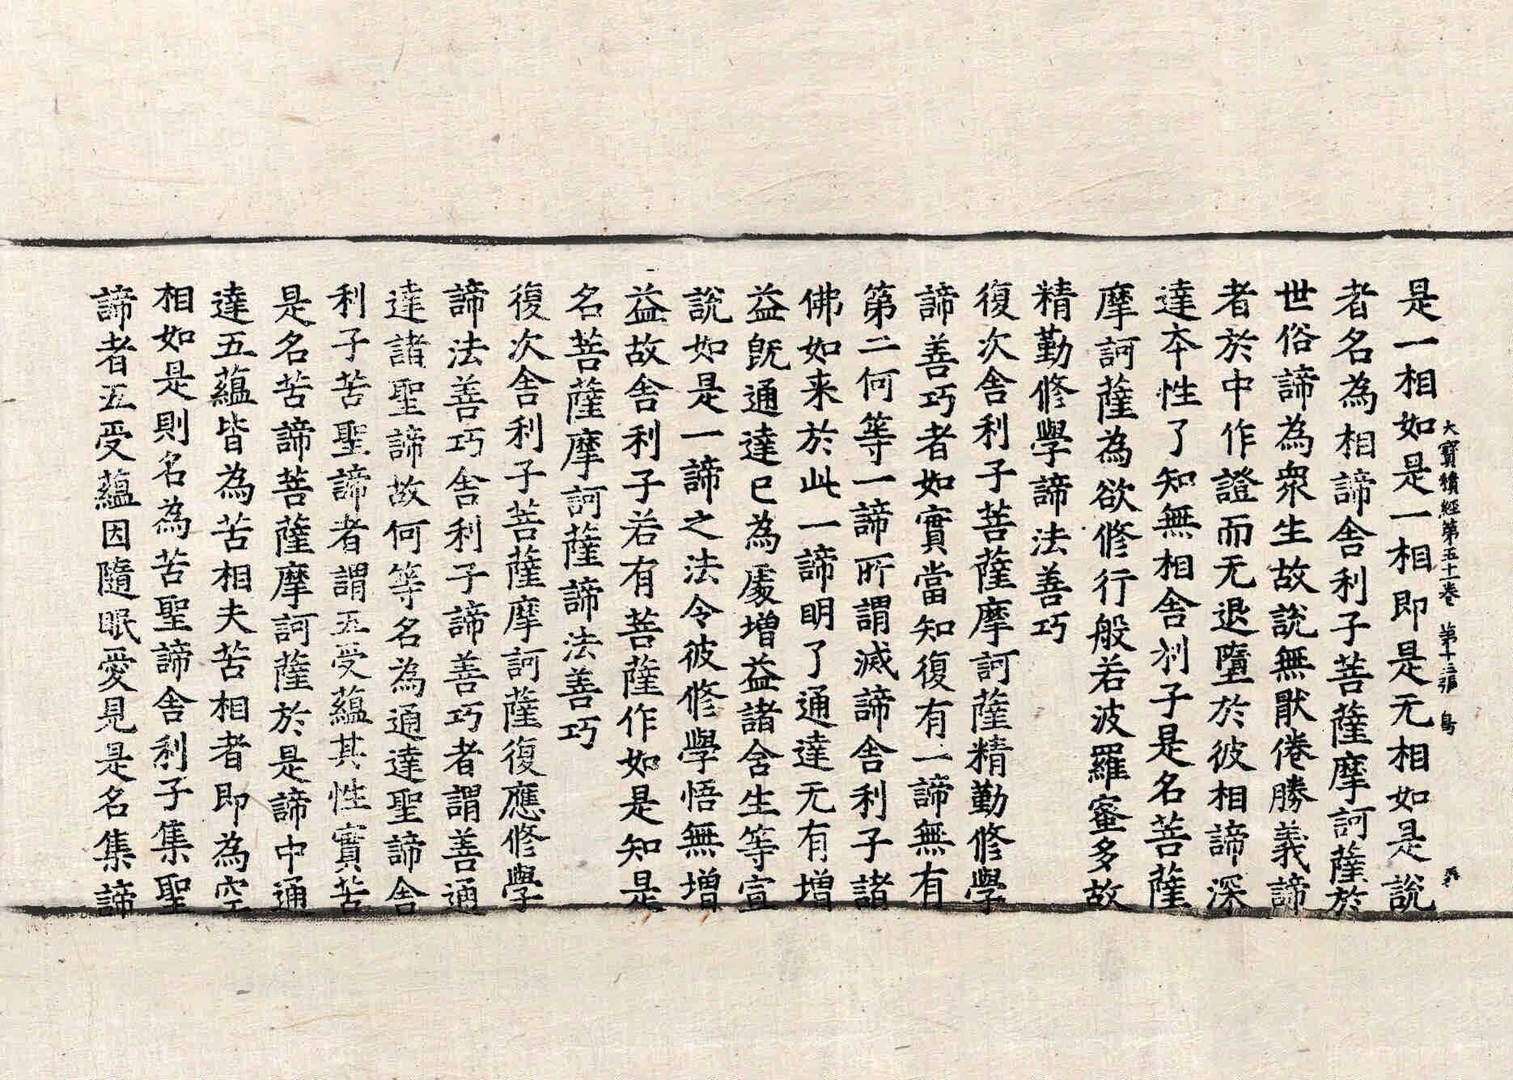 大寶積經第五十一卷 第十三張 鳥
是一相如是一相即是无相如是說
者名為相諦舍利子菩薩摩訶薩於
世俗諦為衆生故說無猒倦勝義諦
者於中作證而无退墮於彼相諦深
達夲性了知無相舍利子是名菩薩
摩訶薩為欲修行般若波羅蜜多故
精勤修學諦法善巧
復次舍利子菩薩摩訶薩精勤修學
諦善巧者如實當知復有一諦無有
第二何等一諦所謂滅諦舍利子諸
佛如来於此一諦明了通達无有増
益旣通達已為處增益諸含生等宣
說如是一諦之法令彼修學悟無増
益故舍利子若有菩薩作如是知是
名菩薩摩訶薩諦法善巧
復次舍利子菩薩摩訶薩復應修學
諦法善巧舍利子諦善巧者謂善通
達諸聖諦故何等名為通達聖諦舍
利子苦聖諦者謂五受蘊其性實苦
是名苦諦菩薩摩訶薩於是諦中通
達五蘊皆為苦相夫苦相者即為空
相如是則名為苦聖諦舍利子集聖
諦者五受蘊因隨眠愛見是名集諦